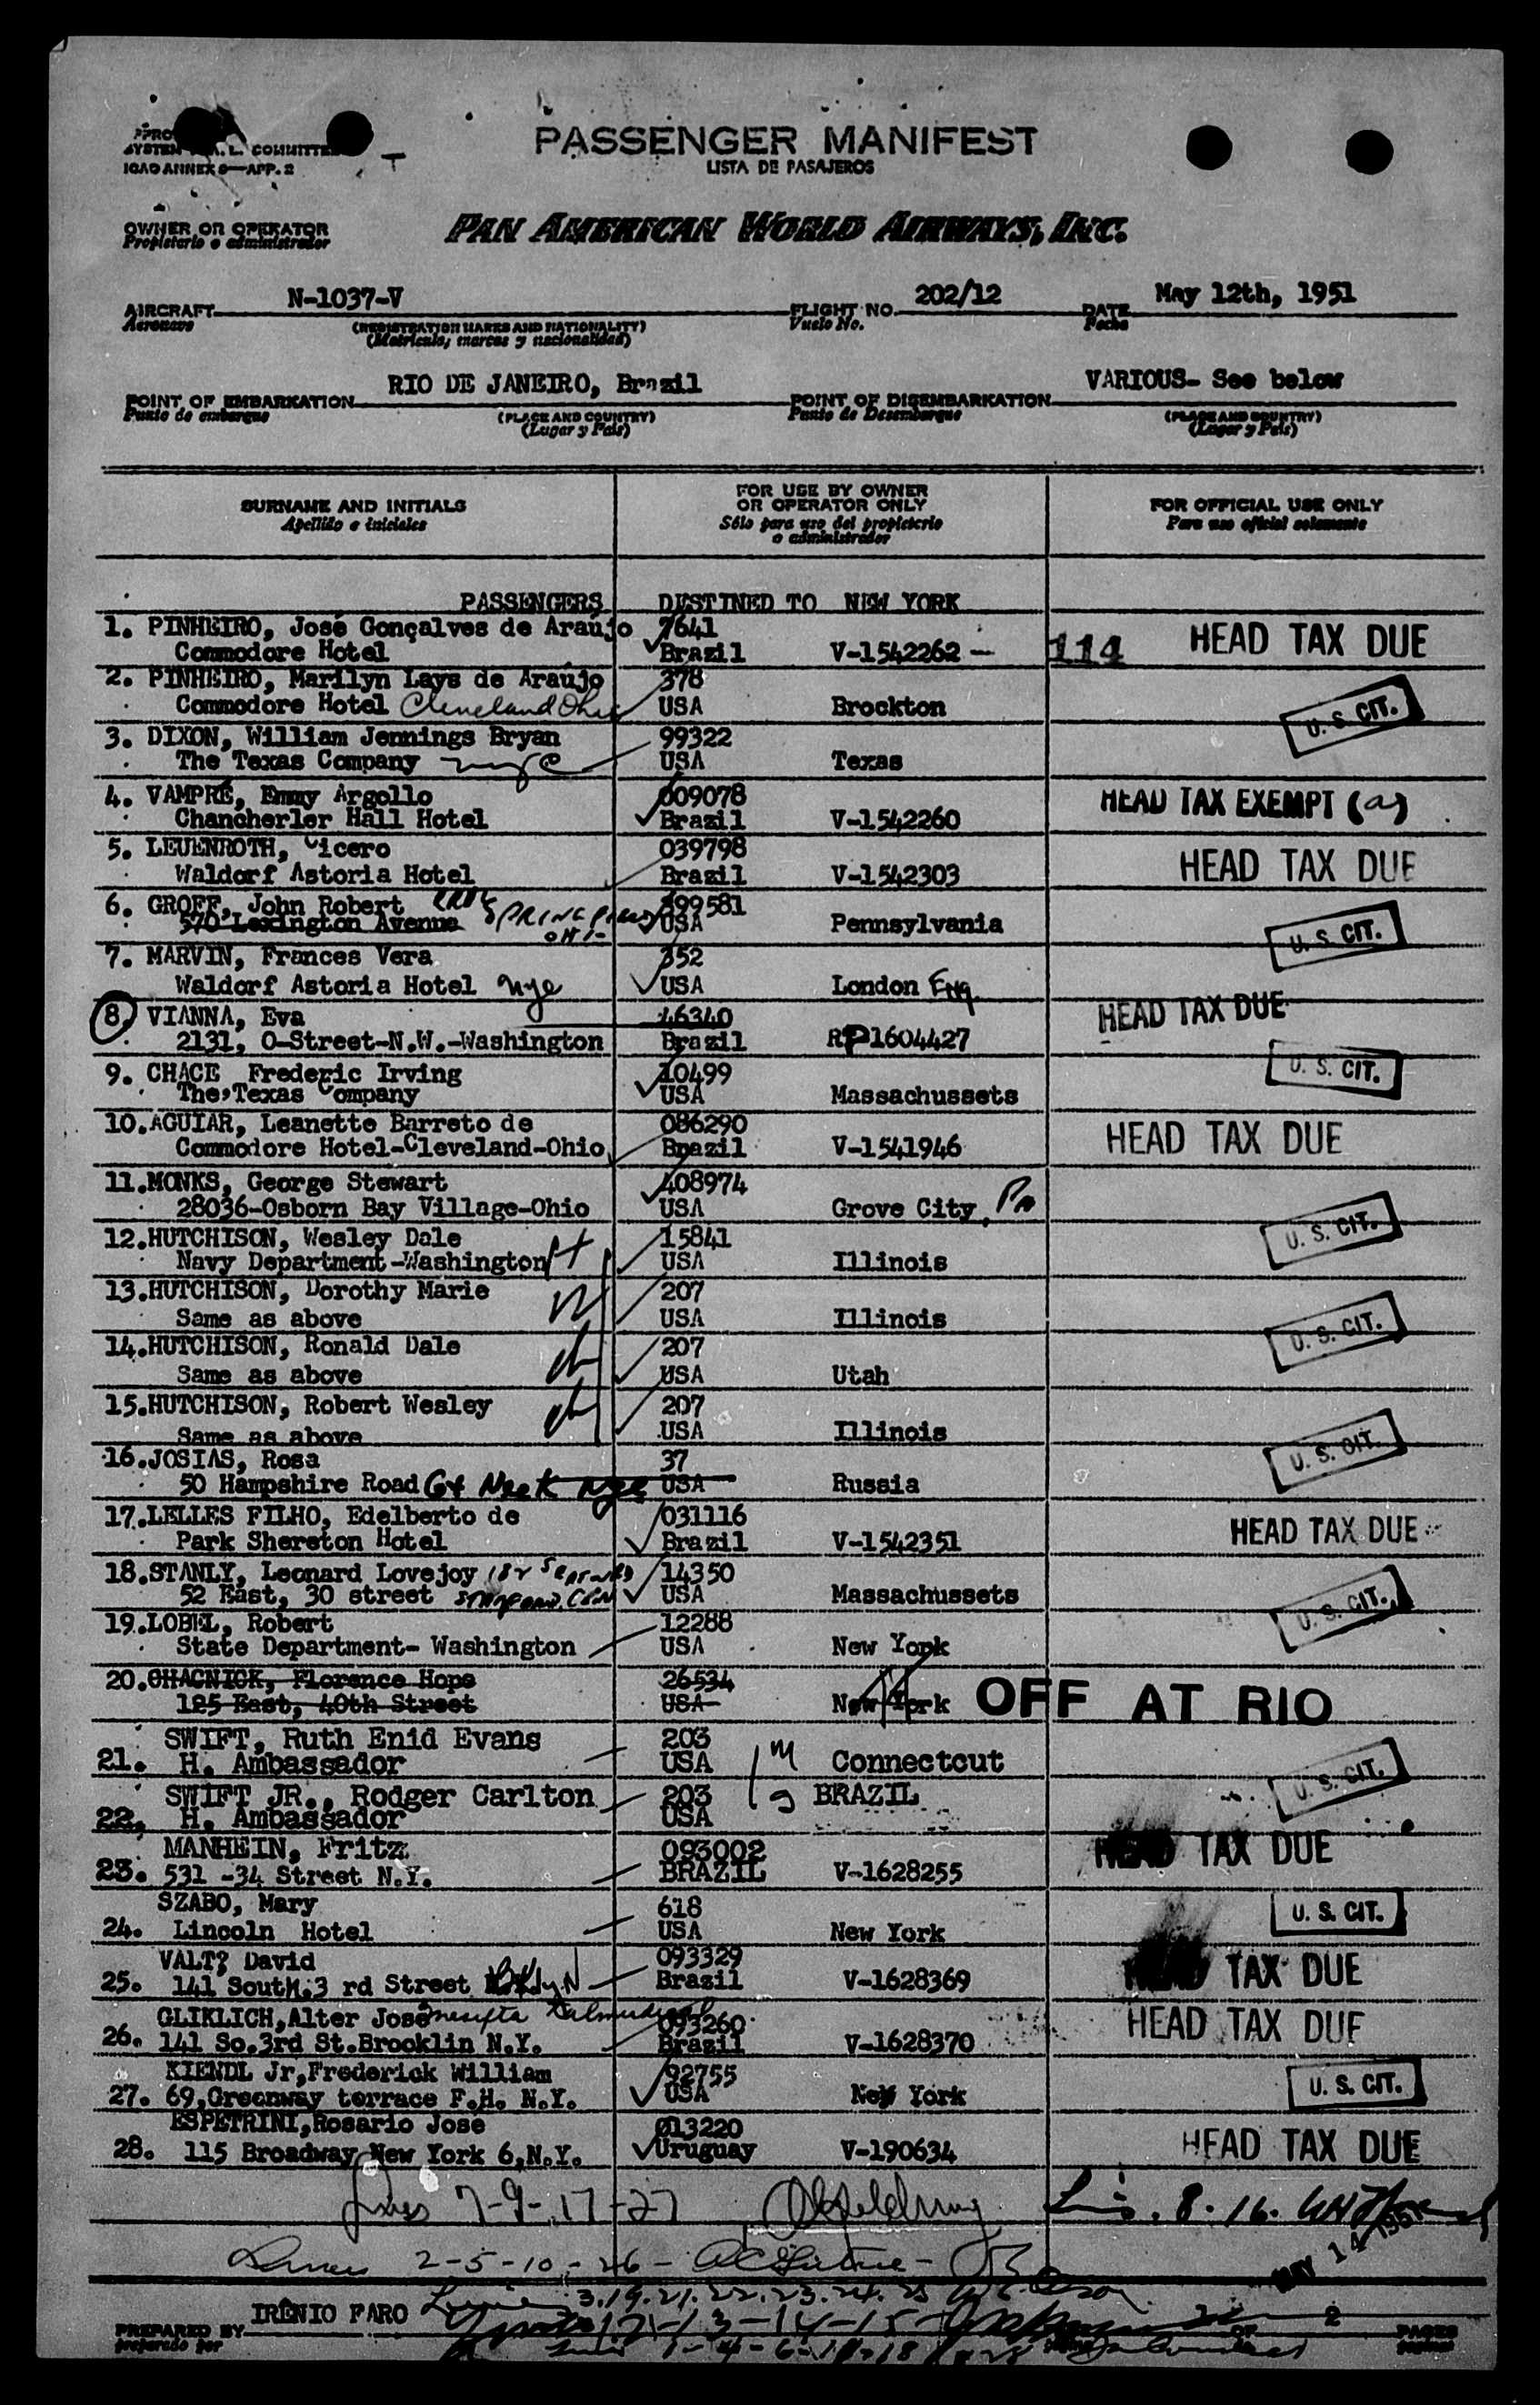 PASSENGER MANIFEST
LISTA DE PASAJEROS
SYSTEM COMMITTEE
ICAO ANNEX 9—APP. 2
OWNER OR OPERATOR
Propietario o administrador
PAN AMERICAN WORLD AIRWAYS, INC.
AIRCRAFT N-1037-V FLIGHT NO. 202/12 DATE May 12th, 1951
Aeronave (REGISTRATION MARKS AND NATIONALITY) Vuelo No. Fecha
(Matrícula, marcas y nacionalidad)
POINT OF EMBARKATION RIO DE JANEIRO, Brazil POINT OF DISEMBARKATION VARIOUS- See below
Punto de embarque (PLACE AND COUNTRY) Punto de Desembarque (PLACE AND COUNTRY)
(Lugar y País) (Lugar y País)
SURNAME AND INITIALS FOR USE BY OWNER OR OPERATOR ONLY FOR OFFICIAL USE ONLY
Apellido e iniciales Sólo para uso del propietario o administrador Para uso oficial solamente
PASSENGERS DESTINED TO NEW YORK
1. PINHEIRO, José Gonçalves de Araújo 7641
Commodore Hotel Brazil V-1542262 — 114 HEAD TAX DUE
2. PINHEIRO, Marilyn Lays de Araújo 378
Commodore Hotel Cleveland Ohio USA Brockton U. S. CIT.
3. DIXON, William Jennings Bryan 99322
The Texas Company nyc USA Texas
4. VAMPRÉ, Emmy Argollo 009078
Chancherler Hall Hotel Brazil V-1542260 HEAD TAX EXEMPT (a)
5. LEUENROTH, Cicero 039798
Waldorf Astoria Hotel Brazil V-1542303 HEAD TAX DUE
6. GROFF, John Robert 399581
570 Lexington Avenue USA Pennsylvania U. S. CIT.
7. MARVIN, Frances Vera 352
Waldorf Astoria Hotel nyc USA London Eng.
8. VIANNA, Eva 46340 HEAD TAX DUE
2131, O-Street-N.W.-Washington Brazil RP1604427
9. CHACE Frederic Irving 10499 U. S. CIT.
The,Texas Company USA Massachussets
10. AGUIAR, Leanette Barreto de 086290
Commodore Hotel-Cleveland-Ohio Brazil V-1541946 HEAD TAX DUE
11. MONKS, George Stewart 408974
28036-Osborn Bay Village-Ohio USA Grove City, Pa
12. HUTCHISON, Wesley Dale 15841 U. S. CIT.
Navy Department-Washington USA Illinois
13. HUTCHISON, Dorothy Marie 207
Same as above USA Illinois
14. HUTCHISON, Ronald Dale 207 U. S. CIT.
Same as above USA Utah
15. HUTCHISON, Robert Wesley 207
Same as above USA Illinois
16. JOSIAS, Rosa 37 U. S. CIT.
50 Hampshire Road Gt Neck USA Russia
17. LELLES FILHO, Edelberto de 031116
Park Shereton Hotel Brazil V-1542351 HEAD TAX DUE
18. STANLY, Leonard Lovejoy 14350
52 East, 30 street USA Massachussets U. S. CIT.
19. LOBEL, Robert 12288
State Department- Washington USA New York
20. CHACNICK, Florence Hope 26534
125 East, 40th Street USA New York OFF AT RIO
SWIFT, Ruth Enid Evans 203
21. H. Ambassador USA m Connectcut U. S. CIT.
SWIFT JR., Rodger Carlton 203 BRAZIL
22. H. Ambassador USA
MANHEIN, Fritz 093002 HEAD TAX DUE
23. 531 -34 Street N.Y. BRAZIL V-1628255
SZABO, Mary 618 U. S. CIT.
24. Lincoln Hotel USA New York
VALT? David 093329 TAX DUE
25. 141 South.3 rd Street Bklyn Brazil V-1628369
GLIKLICH,Alter José 093260 HEAD TAX DUE
26. 141 So.3rd St.Brooklin N.Y. Brazil V-1628370
KIENDL Jr,Frederick William 92755
27. 69,Greenway terrace F.H. N.Y. USA New York U. S. CIT.
ESPETRINI,Rosario Jose 013220
28. 115 Broadway New York 6,N.Y. Uruguay V-190634 HEAD TAX DUE
7-9-17-27 8-16.
2-5-10-26- MAY 14 1951
3.19.21.22.23.24.25
PREPARED BY IRÊNIO FARO 12-13-14-15 OF 2 PAGES
preparado por